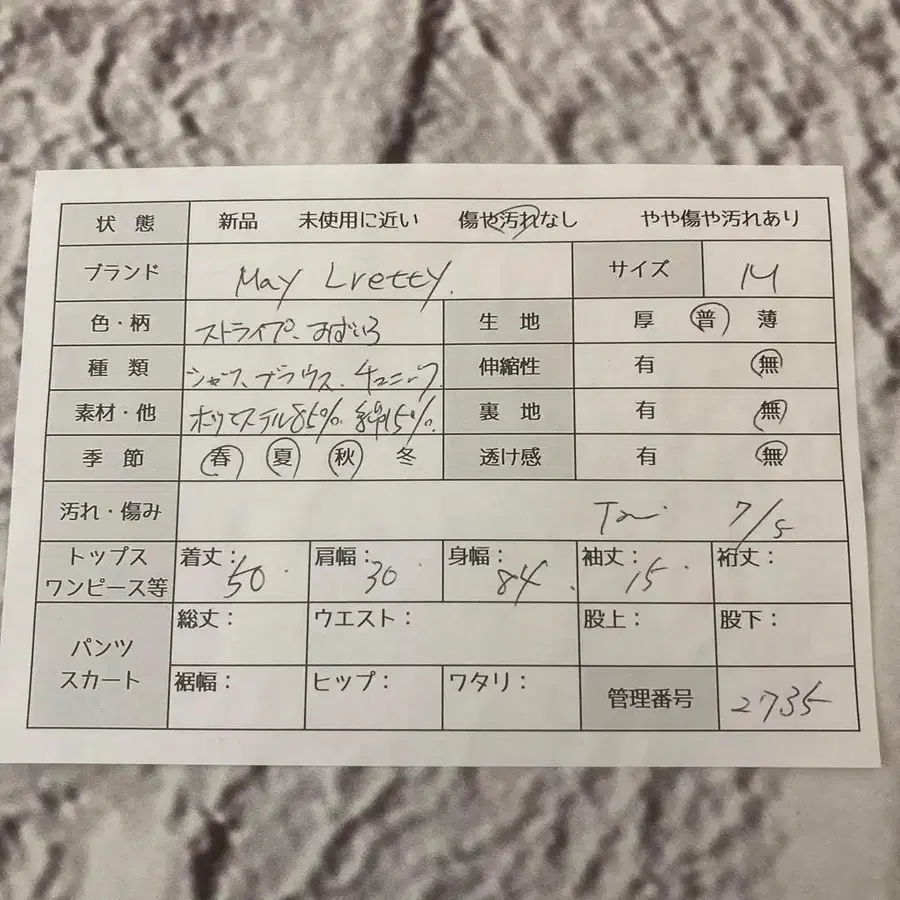 状態 新品 未使用に近い 傷や汚れなし やや傷や汚れあり
ブランド May Lretty. サイズ M
色・柄 ストライプ、みずいろ 生地 厚 普 薄
種類 シャツ、ブラウス、チュニック 伸縮性 有 無
素材・他 ポリエステル85% 綿15% 裏地 有 無
季節 春 夏 秋 冬 透け感 有 無
汚れ・傷み 7/5
トップス ワンピース等 着丈：50 肩幅：30 身幅：84 袖丈：15 裄丈：
パンツ スカート 総丈： ウエスト： 股上： 股下：
裾幅： ヒップ： ワタリ： 管理番号 2735